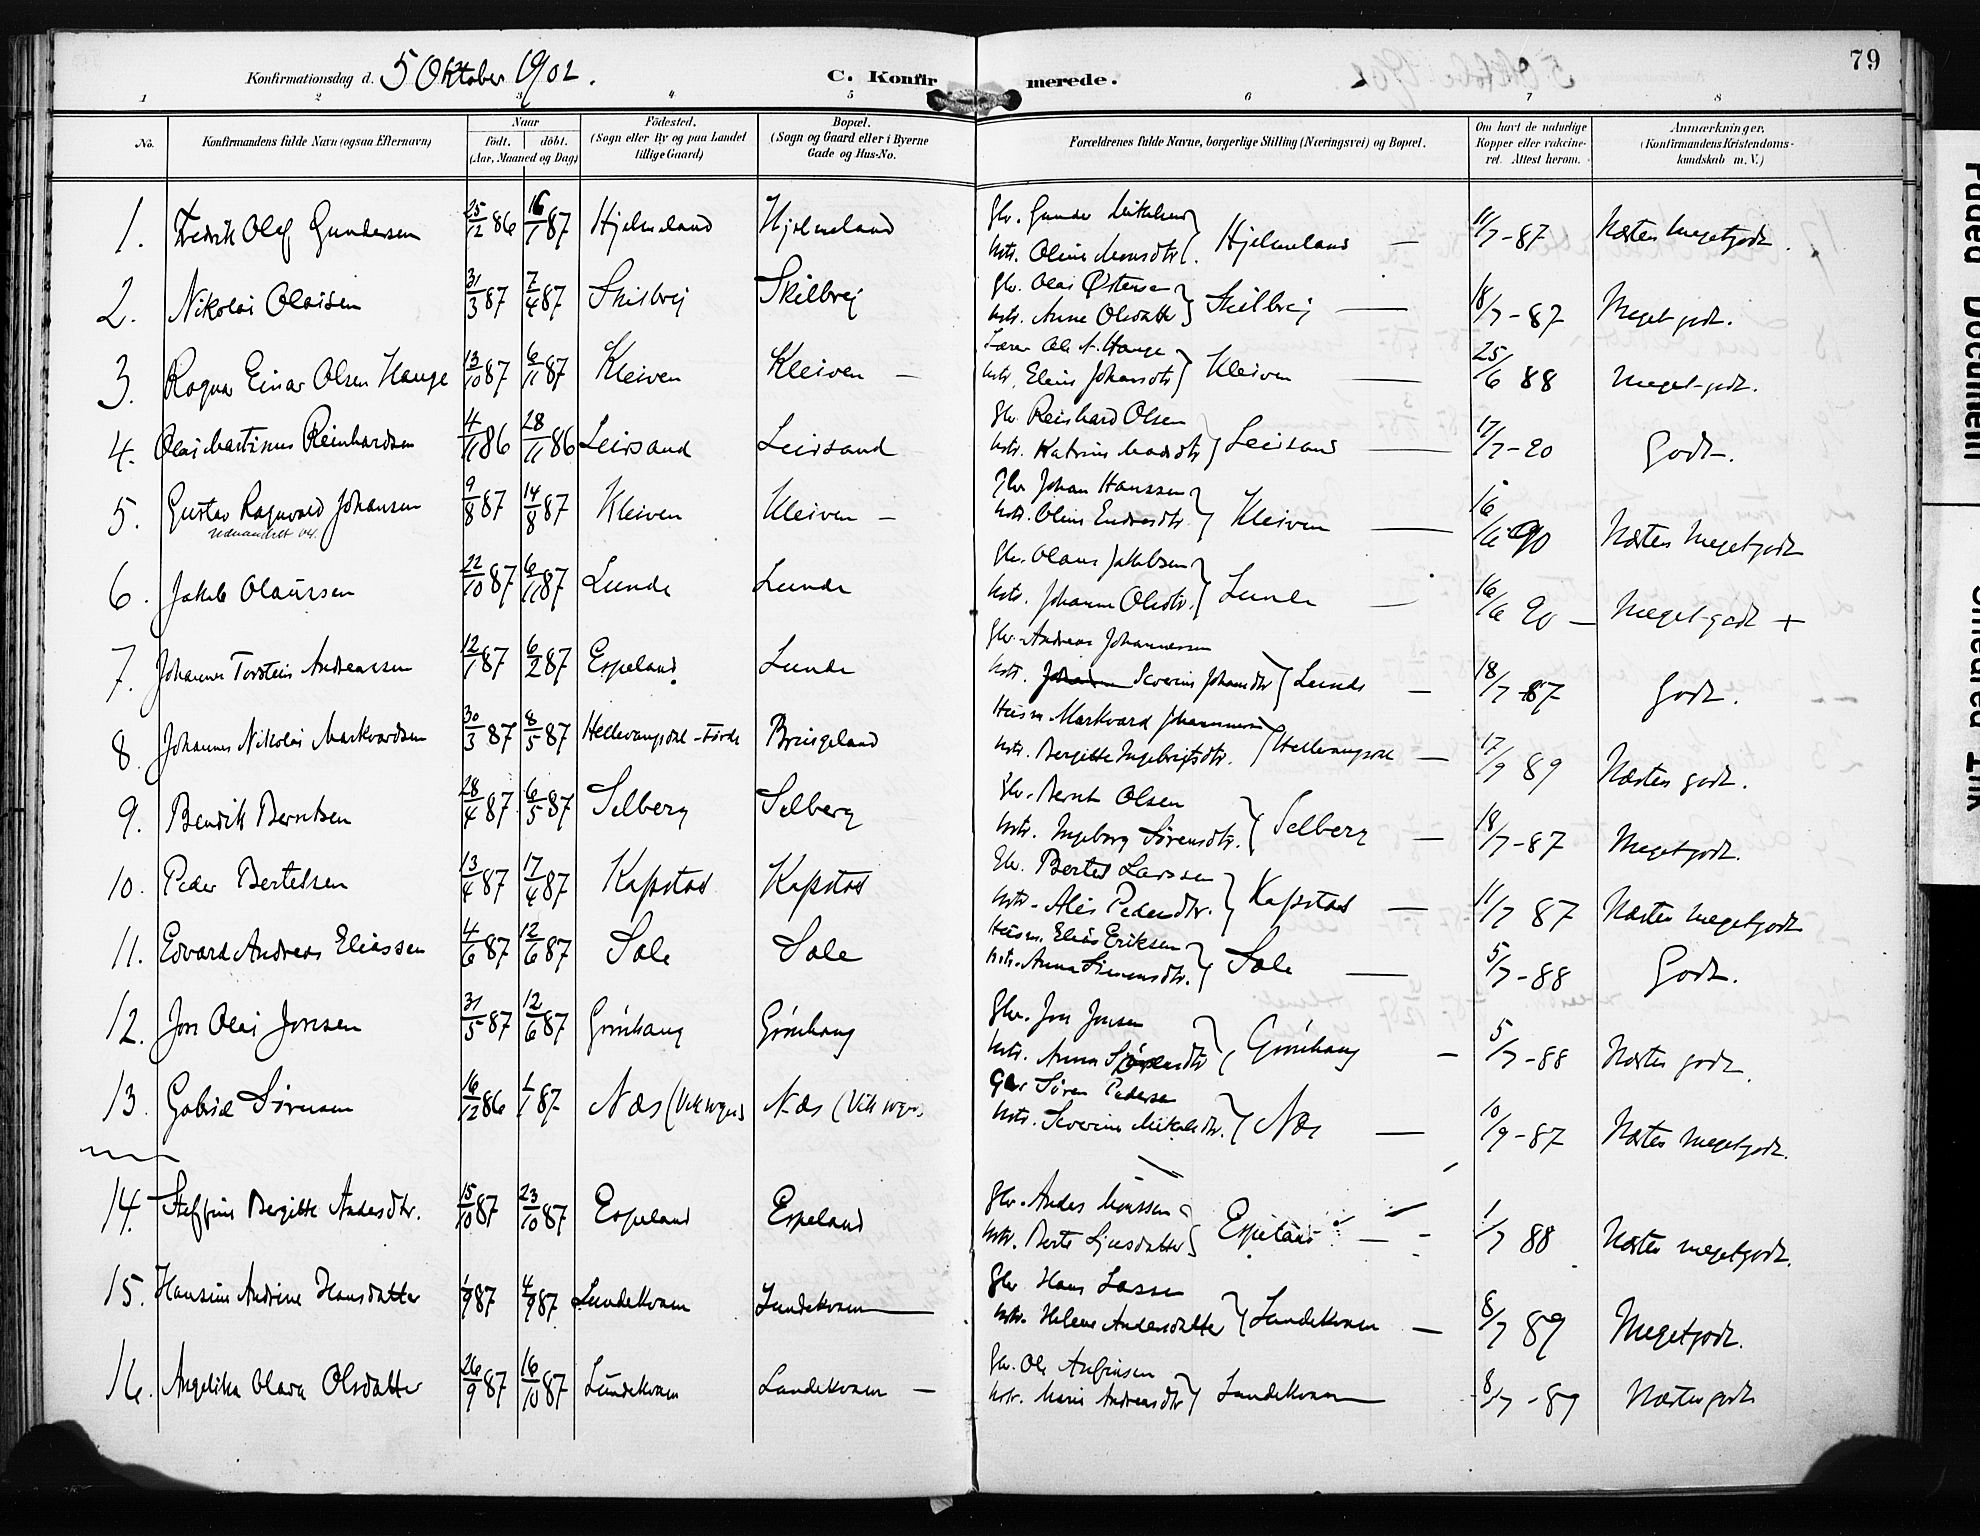 Konfirmationsdag d. 5 Oktober 1902. C. Konfirmerede. 79
1 2 3 4 5 6 7 8
No. Konfirmandens fulde Navn (ogsaa Efternavn) Naar født. døbt. (Aar, Maaned og Dag) Fødested. (Sogn eller By og paa Landet tillige Gaard) Bopæl. (Sogn og Gaard eller i Byerne Gade og Hus-No. Forældrenes fulde Navne, borgerlige Stilling (Næringsvei) og Bopæl. Om havt de naturlige Kopper eller vaccineret. Attest herom. Anmærkninger, (Konfirmandens Kristendomskundskab m. V.)
1. Fredrik Olaf Gundersen 25/12 86 16/1 87 Hjelmeland Hjelmeland Gbr. Gunder Mikkelsen Kstr. Oline Monsdtr. Hjelmeland — 11/7-87 Næsten Megetgodt.
2. Nikolai Olaisen 31/3 87 7/4 87 Skilbrej Skilbrej Gbr. Olai Østensen Kstr. Anne Olsdatter Skilbrej — 18/7-87 Meget godt.
3. Ragnar Einar Olsen Hauge 13/10 87 6/11 87 Kleiven Kleiven — Lærer Ole A. Hauge Kstr. Eline Johansdtr Kleiven — 25/6 88 Meget godt.
4. Olai Martinus Reinhardsen 4/11 86 28/11 86 Leirsand Leirsand Gbr. Reinhard Olsen Kstr. Katrine Madsdtr Leirsand — 17/7-20 Godt.
5. Gustav Ragnvald Johansen 9/8 87 14/8 87 Kleiven Kleiven — Gbr Johan Hanssen Kstr. Oline Endresdtr. Kleiven — 16/6 90 Næsten Megetgodt
6. Jakob Olaussen 22/10 87 6/11 87 Lunde Lunde Gbr. Olaus Jakobsen Kstr. Johanne Olsdtr. Lunde — 16/6 90 — Meget godt +
7. Johannes Torstein Andreassen 12/1 87 6/2 87 Espeland Lunde Gbr. Andreas Johannessen Kstr. Severine Johansdtr Lunde — 18/7 87 Godt.
8 Johannes Nikolai Markvardsen 30/3 87 8/5 87 Hellevangsdal - Førde Bringeland Husm. Markvard Johannessen Kstr. Bergitte Ingebrigtsdtr. Hellevangsdal — 17/9 89 Næsten godt.
9. Bendik Berntsen 28/4 87 6/5 87 Selberg Selberg Gbr. Bernt Olsen Kstr. Ingeborg Sørensdtr. Selberg — 18/7-87 Megetgodt.
10. Peder Bertelsen 13/4 87 17/4 87 Kapstad Kapstad Gbr. Bertel Larssen Kstr. Alis Pedersdtr. Kapstad — 11/7 87 Næsten Megetgodt
11. Edvard Andreas Eliassen 4/6 87 12/6 87 Sole Sole Husm. Elias Eriksen Kstr. Anna Simensdtr. Sole — 5/7-88 Godt.
12. Jon Olai Jonsen 31/5 87 12/6 87 Grønhaug Grønhaug Gbr. Jon Jonsen Kstr. Anna Sørensdtr Grønhaug — 5/7-88 Næsten godt.
13. Gabriel Sørensen 16/12 86 1/1 87 Næs Næs Gbr Søren Pedersen Kstr. Severine Mikkelsdtr. Næs — 10/9-87 Næsten Megetgodt.
14. Steffine Bergitte Andersdtr. 15/10 87 23/10 87 Espeland Espeland Gbr. Anders Monssen Kstr. Berte Espeland — 1/7 88 Næsten megetgodt.
15. Hansine Andrine Hansdatter 1/9 87 4/9 87 Lundekvam Lundekvam — Gbr Hans Lassen Kstr. Helene Andersdatter Lundekvam — 8/7 89 Megetgodt.
16. Angelika Olava Olsdatter 26/9 87 16/10 87 Lundekvam Lundekvam — Gbr. Ole Anfinsen Kstr. Marie Andreasdtr Lundekvam — 8/7-89 Næsten godt
Faded Document
Smeared Ink